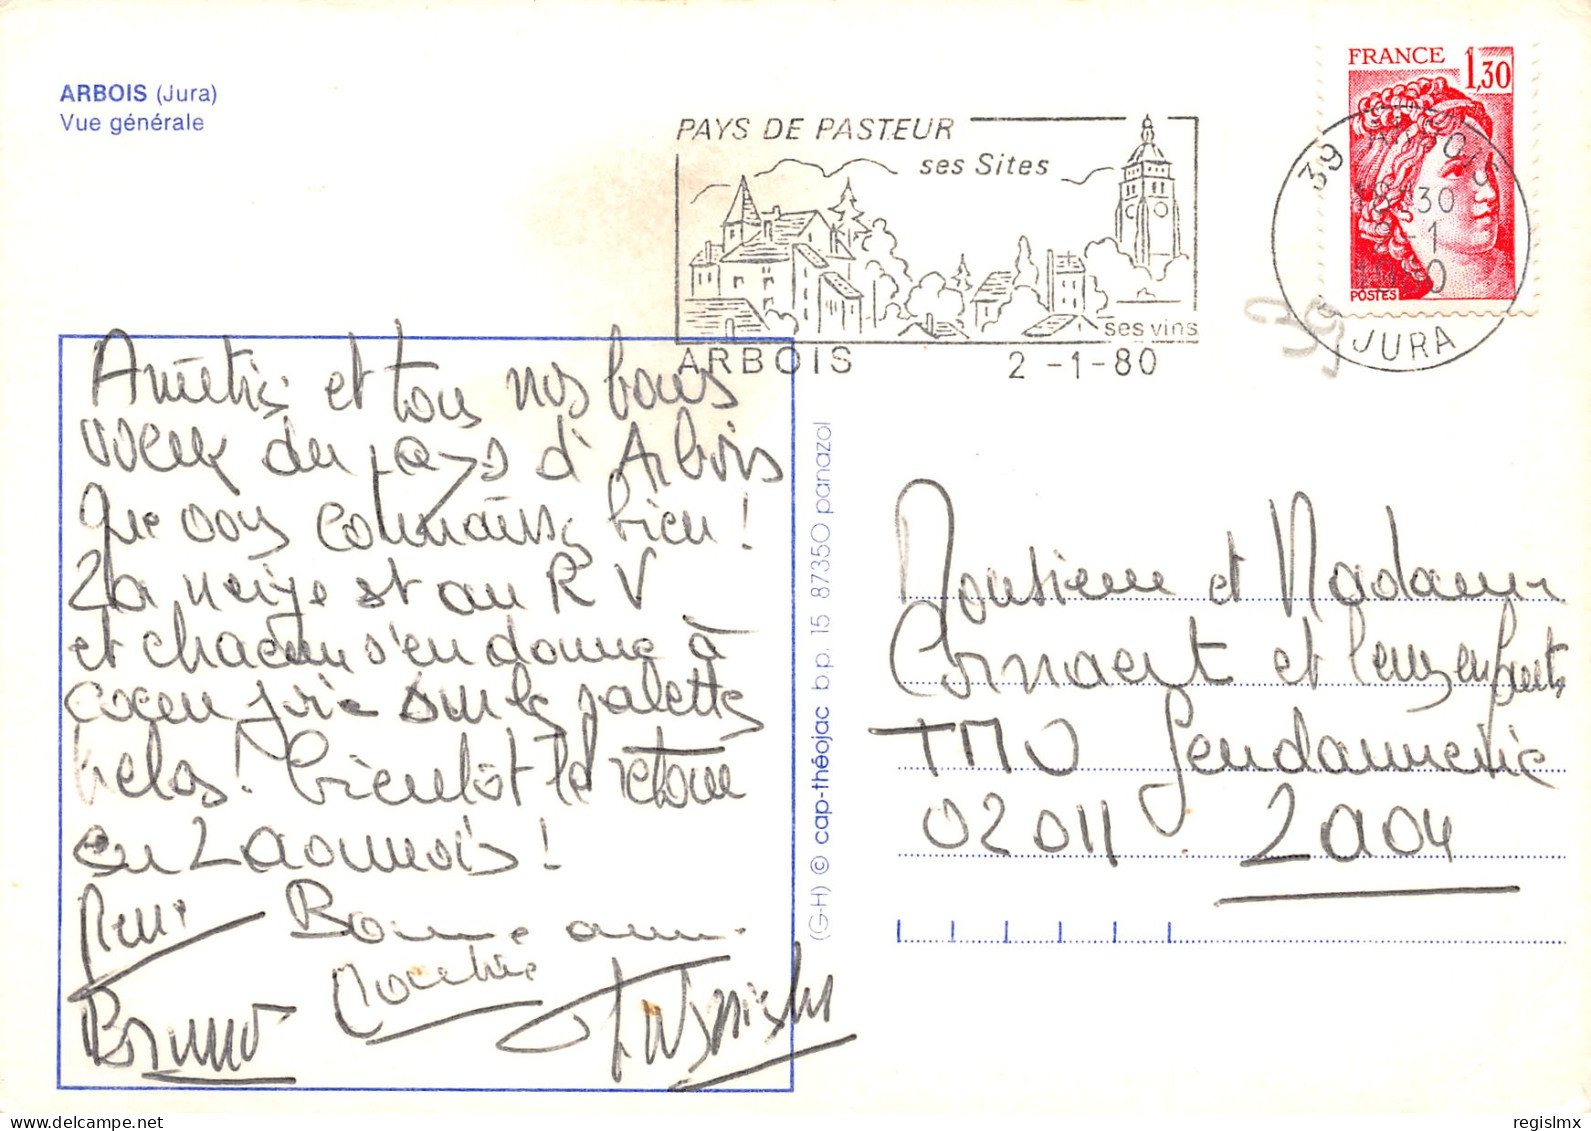 ARBOIS (Jura)
Vue générale
PAYS DE PASTEUR
ses Sites
ses vins
ARBOIS 2-1-80
FRANCE 1,30
POSTES
39 ARBOIS
18H30
2-1
1980
JURA
39
Amitiés et tous nos bons
voeux du pays d'Arbois
que vous connaissez bien !
La neige est au RV
et chacun s'en donne à
coeur joie sur les
! bientôt le retour
en Laonnois !
Bonne année
Bruno
(G-H) © cap-théojac b.p. 15 87350 panazol
Monsieur et Madame
Cornaert et leurs enfants
TMO Gendarmerie
02011 Laon
regislmx